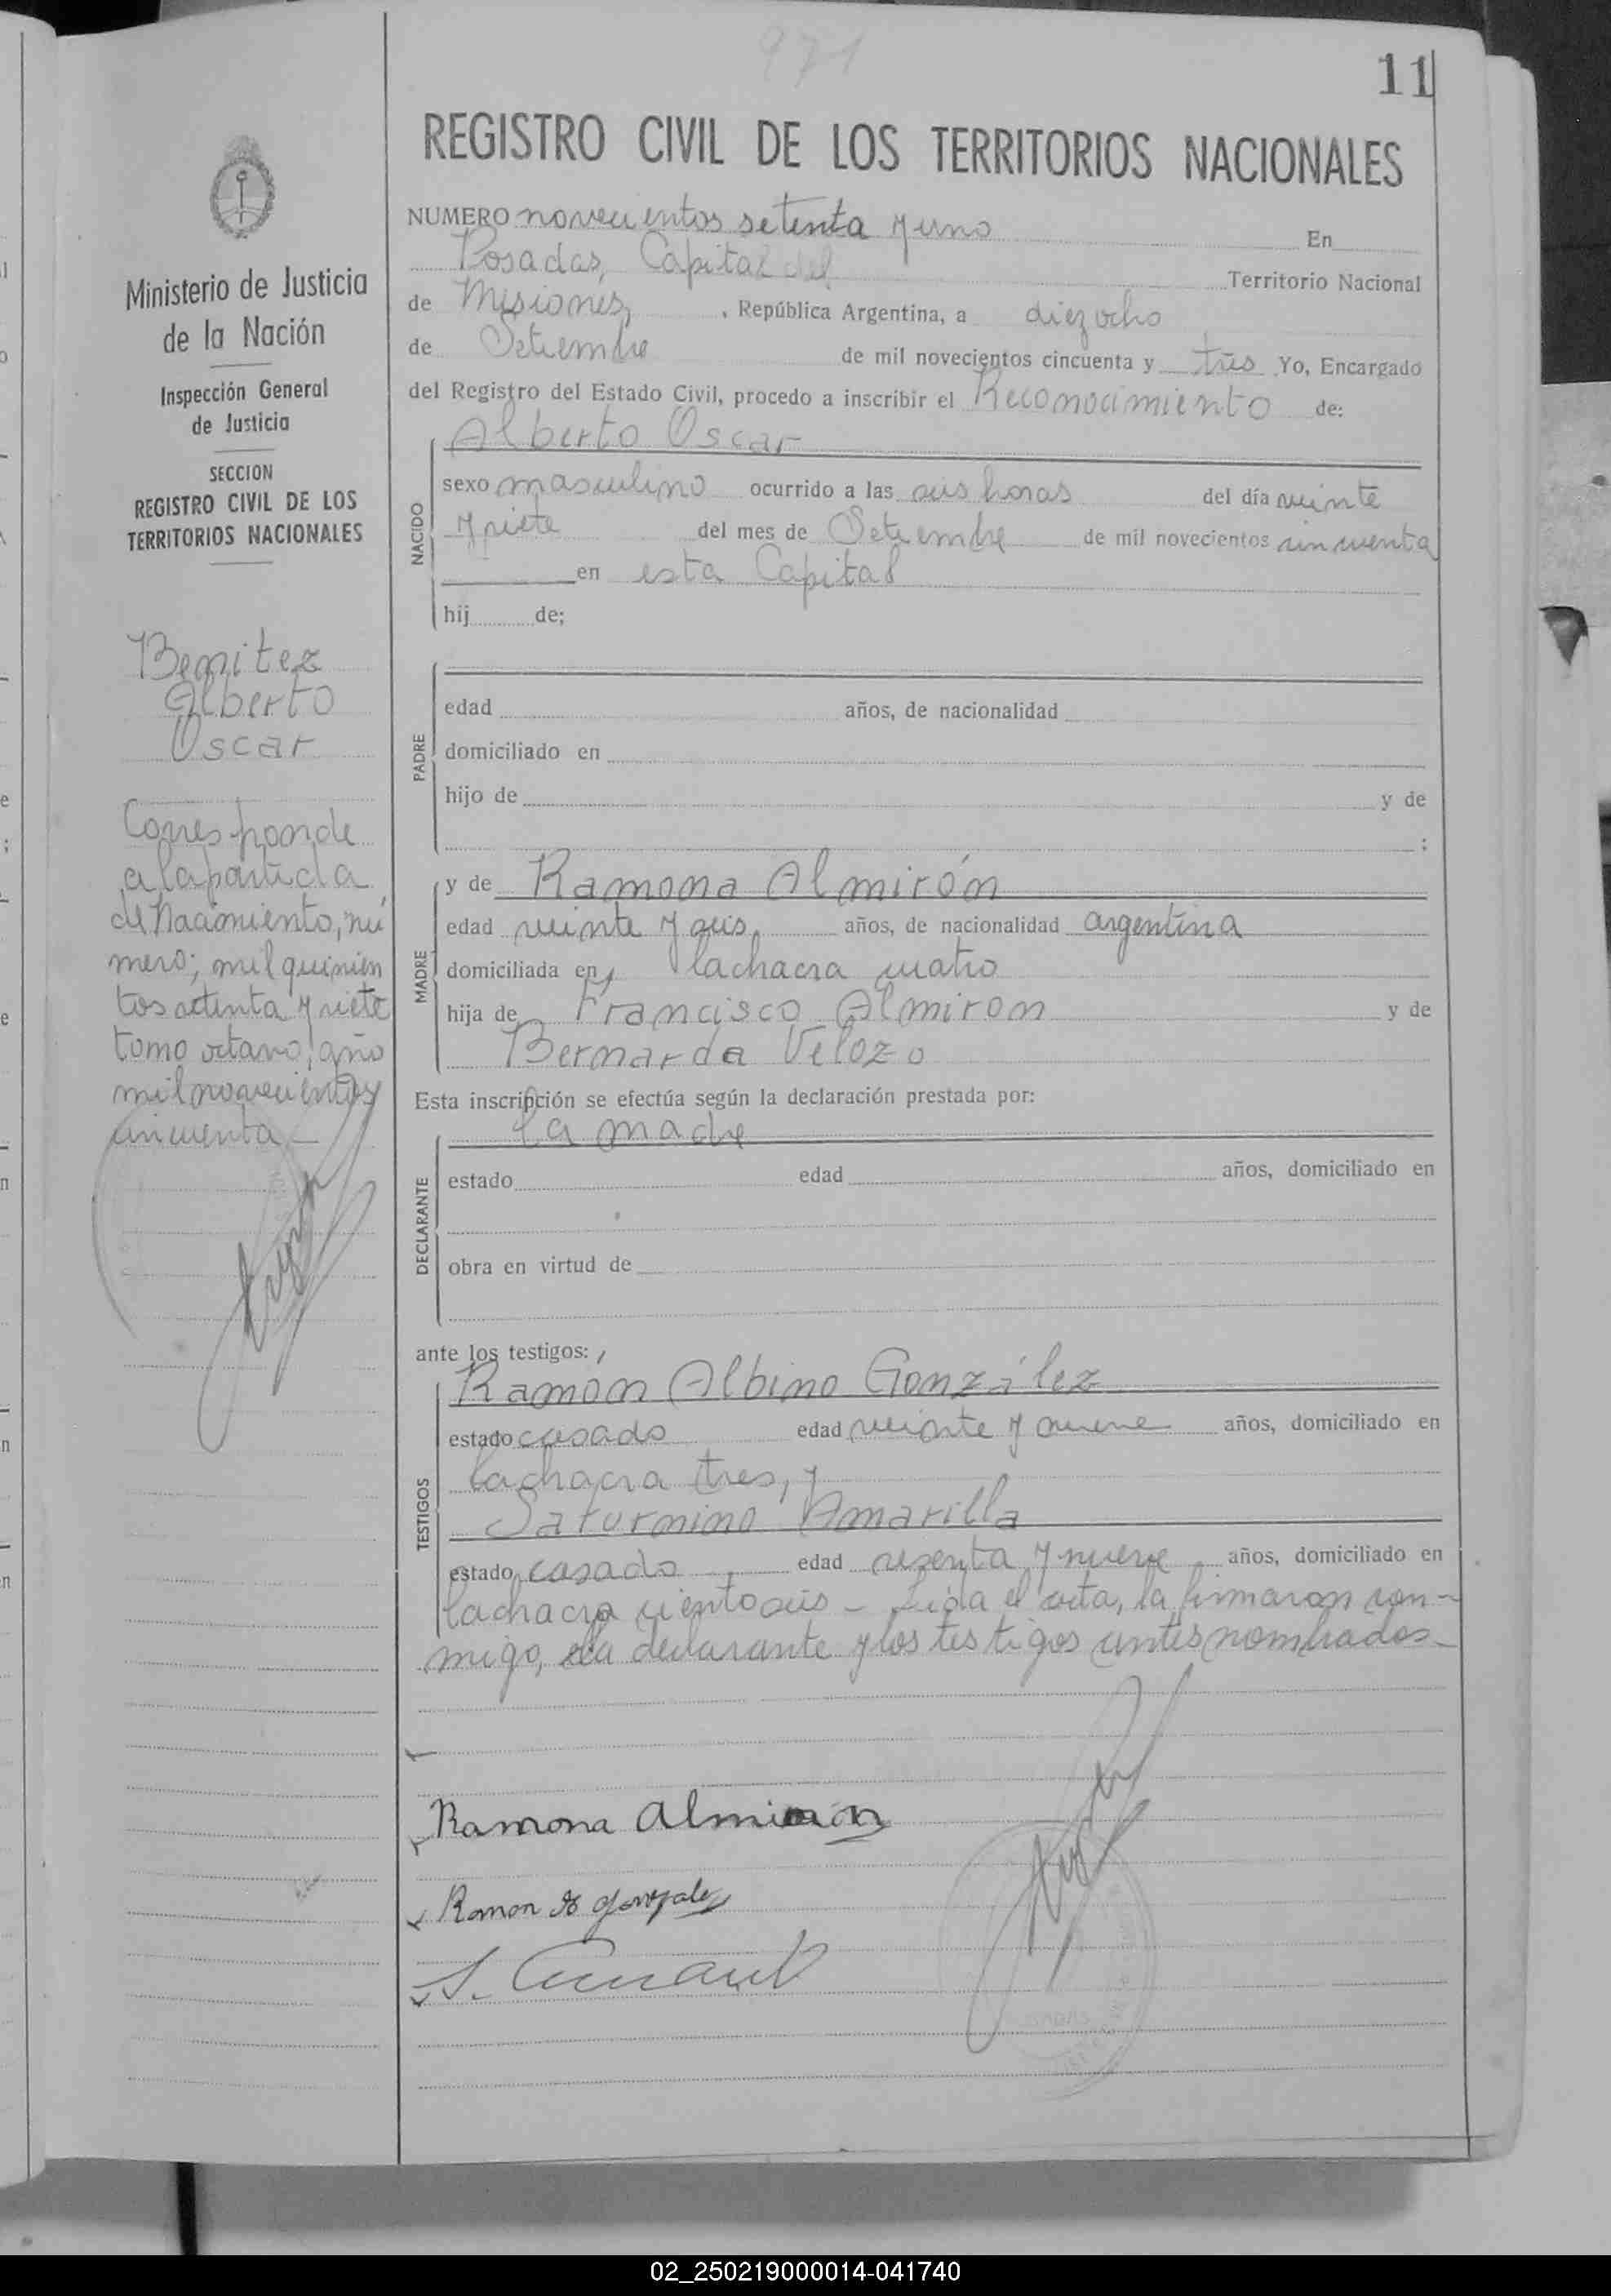 971
11
REGISTRO CIVIL DE LOS TERRITORIOS NACIONALES
Ministerio de Justicia
de la Nación
Inspección General
de Justicia
SECCION
REGISTRO CIVIL DE LOS
TERRITORIOS NACIONALES
Benitez
Alberto
Oscar
Corresponde
a la partida
de Nacimiento, nú
mero; mil quinien
tos setenta y siete
tomo octavo, año
mil novecientos
cincuenta
NUMERO novecientos setenta y uno En
Posadas, Capital del Territorio Nacional
de Misiones, , República Argentina, a diez ocho
de Setiembre de mil novecientos cincuenta y tres Yo, Encargado
del Registro del Estado Civil, procedo a inscribir el Reconocimiento de:
NACIDO
Alberto Oscar
sexo masculino ocurrido a las seis horas del día veinte
y siete del mes de Setiembre de mil novecientos cincuenta
en esta Capital
hij de;
PADRE
edad años, de nacionalidad
domiciliado en
hijo de y de
;
MADRE
y de Ramona Almirón
edad veinte y seis, años, de nacionalidad argentina
domiciliada en la chacra cuatro
hija de Francisco Almiron y de
Bernarda Velozo
Esta inscripción se efectúa según la declaración prestada por:
DECLARANTE
la madre
estado edad años, domiciliado en
obra en virtud de
ante los testigos:
TESTIGOS
Ramon Albino González
estado casado edad veinte y nueve años, domiciliado en
la chacra tres, y
Saturnino Amarilla
estado casado edad sesenta y nueve años, domiciliado en
la chacra ciento seis - Leida el acta, la firmaron con-
migo, la declarante y los testigos antes nombrados-
Ramona Almirón
Ramon A Gonzalez
S.
02_250219000014-041740